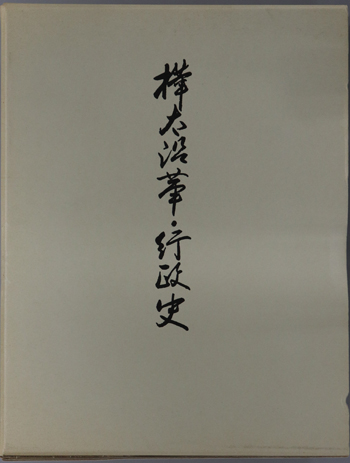 樺太沿革・行政史